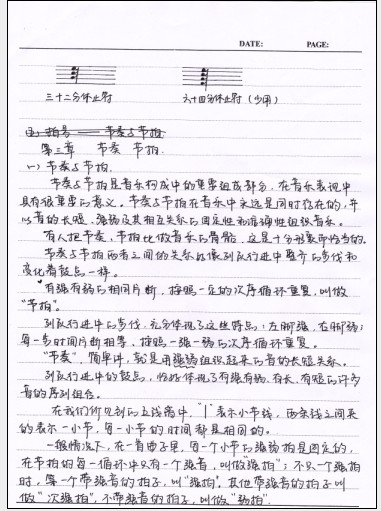 DATE: PAGE:
三十二分休止符 六十四分休止符（少用）
四、拍号——节奏与节拍
第三章 节奏 节拍.
一）节奏与节拍.
节奏与节拍是音乐构成中的重要组成部分，在音乐表现中
具有很重要的意义。节奏与节拍在音乐中永远是同时存在的，并
以音的长短、强弱及其相互关系的固定性和准确性组织音乐。
有人把节奏、节拍比做音乐的骨骼，这是十分形象而恰当的。
节奏与节拍两者之间的关系就像列队行进中整齐的步伐和
变化着鼓点一样。
有强有弱的相同片断，按照一定的次序循环重复，叫做
"节拍"。
列队行进中的步伐，充分体现了这些特点：左脚强，右脚弱；
每一步时间片断相等，按强一强一弱的次序循环重复。
"节奏"，简单讲，就是用强弱组织起来的音的长短关系。
列队行进中的鼓点，恰好体现了有强有弱、有长、有短的许多
音的序列组合。
在我们所见到的五线谱中，"|"表示小节线，两条线之间夹
的表示一小节，每一小节的时间都是相同的。
一般情况下，在一首曲子里，每一个小节的强弱拍是固定的，
在节拍的每一循环中只有一个强音，叫做"强拍"；不只一个强拍
时，第一个带强音的拍子，叫"强拍"，其他带强音的拍子叫
做"次强拍"，不带强音的拍子，叫做"弱拍".